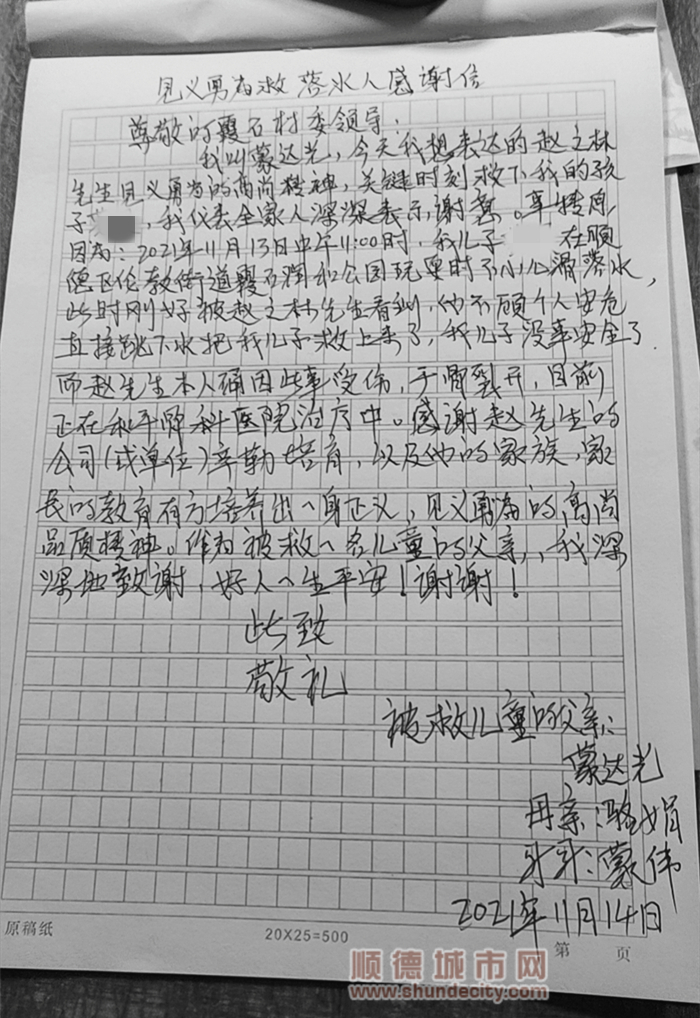 见义勇为救落水人感谢信
尊敬的霞石村委领导：
我叫蒙达光，今天我想表达的赵之林
先生见义勇为的高尚精神，关键时刻救下我的孩
子，我代表全家人深深表示谢意。事情原
因为：2021年11月13日中午11:00时，我儿子 在顺
德区伦教街道霞石润和公园玩耍时不小心滑落水，
此时刚好被赵之林先生看到，他不顾个人安危
直接跳下水把我儿子救上来了，我儿子没事安全了
而赵先生本人确因此事受伤，手骨裂开，目前
正在和平骨科医院治疗中。感谢赵先生的
公司(或单位)辛勤培育，以及他的家族、家
长的教育有方培养出一身正义，见义勇为的高尚
品质精神。作为被救一名儿童的父亲，，我深
深地致谢，好人一生平安！谢谢！
此致
敬礼
被救儿童的父亲：
蒙达光
母亲：骆娟
牙牙：蒙伟
2021年11月14日
原稿纸
20X25=500
第 页
顺德城市网
www.shundecity.com